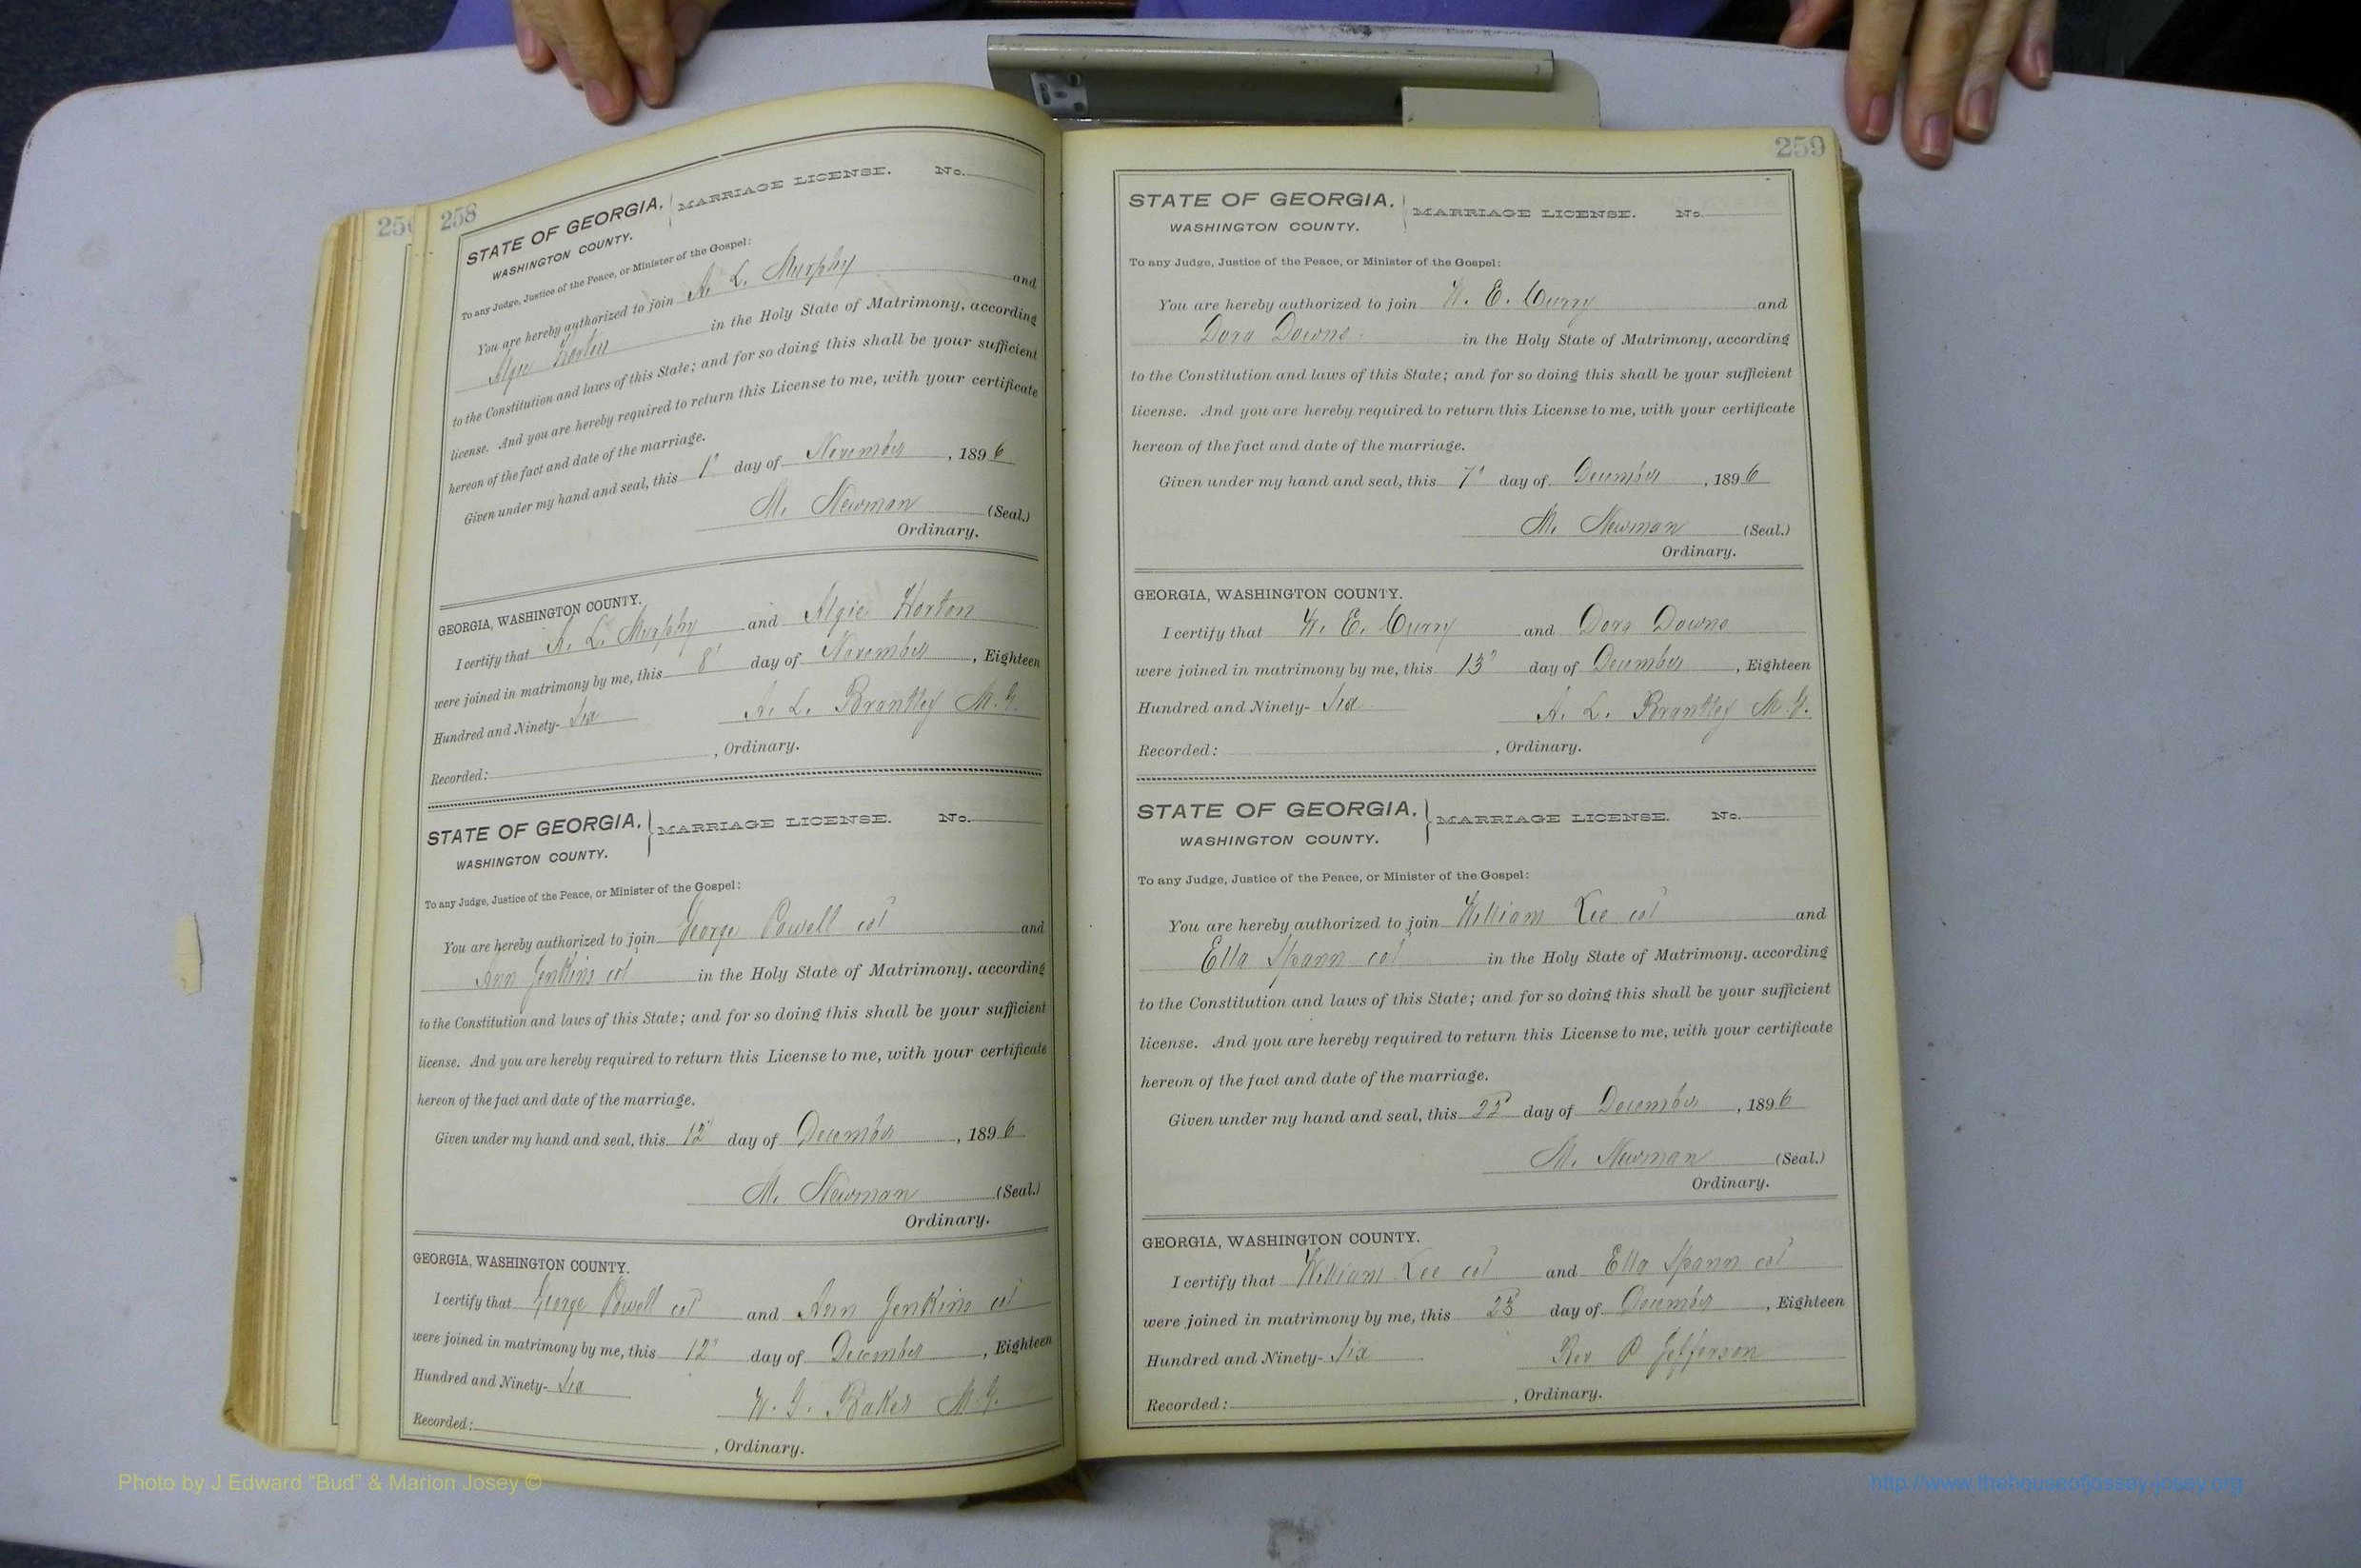 256
258
STATE OF GEORGIA, MARRIAGE LICENSE. No.
WASHINGTON COUNTY.
To any Judge, Justice of the Peace, or Minister of the Gospel:
You are hereby authorized to join A. L. Murphy and
Algie Horton in the Holy State of Matrimony, according
to the Constitution and laws of this State; and for so doing this shall be your sufficient
license. And you are hereby required to return this License to me, with your certificate
hereon of the fact and date of the marriage.
Given under my hand and seal, this 1" day of November, 1896
M. Newman (Seal.)
Ordinary.
GEORGIA, WASHINGTON COUNTY.
I certify that A. L. Murphy and Algie Horton
were joined in matrimony by me, this 8" day of November, Eighteen
Hundred and Ninety- Six A. L. Brantley M. G.
Recorded: , Ordinary.
STATE OF GEORGIA, MARRIAGE LICENSE. No.
WASHINGTON COUNTY.
To any Judge, Justice of the Peace, or Minister of the Gospel:
You are hereby authorized to join George Powell col and
Ann Jenkins col in the Holy State of Matrimony, according
to the Constitution and laws of this State; and for so doing this shall be your sufficient
license. And you are hereby required to return this License to me, with your certificate
hereon of the fact and date of the marriage.
Given under my hand and seal, this 12" day of December, 1896
M. Newman (Seal.)
Ordinary.
GEORGIA, WASHINGTON COUNTY.
I certify that George Powell col and Ann Jenkins col
were joined in matrimony by me, this 12" day of December, Eighteen
Hundred and Ninety- Six W. G. Baker M. G.
Recorded: , Ordinary.
259
STATE OF GEORGIA, MARRIAGE LICENSE. No.
WASHINGTON COUNTY.
To any Judge, Justice of the Peace, or Minister of the Gospel:
You are hereby authorized to join W. E. Curry and
Dora Downs in the Holy State of Matrimony, according
to the Constitution and laws of this State; and for so doing this shall be your sufficient
license. And you are hereby required to return this License to me, with your certificate
hereon of the fact and date of the marriage.
Given under my hand and seal, this 7" day of December, 1896
M. Newman (Seal.)
Ordinary.
GEORGIA, WASHINGTON COUNTY.
I certify that W. E. Curry and Dora Downs
were joined in matrimony by me, this 13" day of December, Eighteen
Hundred and Ninety- Six A. L. Brantley M. G.
Recorded: , Ordinary.
STATE OF GEORGIA, MARRIAGE LICENSE. No.
WASHINGTON COUNTY.
To any Judge, Justice of the Peace, or Minister of the Gospel:
You are hereby authorized to join William Lee col and
Ella Spann col in the Holy State of Matrimony, according
to the Constitution and laws of this State; and for so doing this shall be your sufficient
license. And you are hereby required to return this License to me, with your certificate
hereon of the fact and date of the marriage.
Given under my hand and seal, this day of December, 1896
M. Newman (Seal.)
Ordinary.
GEORGIA, WASHINGTON COUNTY.
I certify that William Lee col and Ella Spann col
were joined in matrimony by me, this 23 day of December, Eighteen
Hundred and Ninety- Six Rev P Jefferson
Recorded: , Ordinary.
Photo by J Edward “Bud” & Marion Josey ©
http://www.thehouseofjossey-josey.org